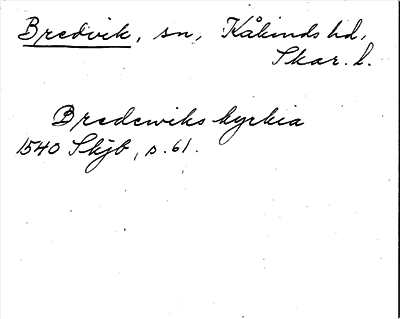 Bredvik, sn, Kåkinds hd,
Skar. l.
Bredewiks kyrkia
1540 Skjb, s. 61.